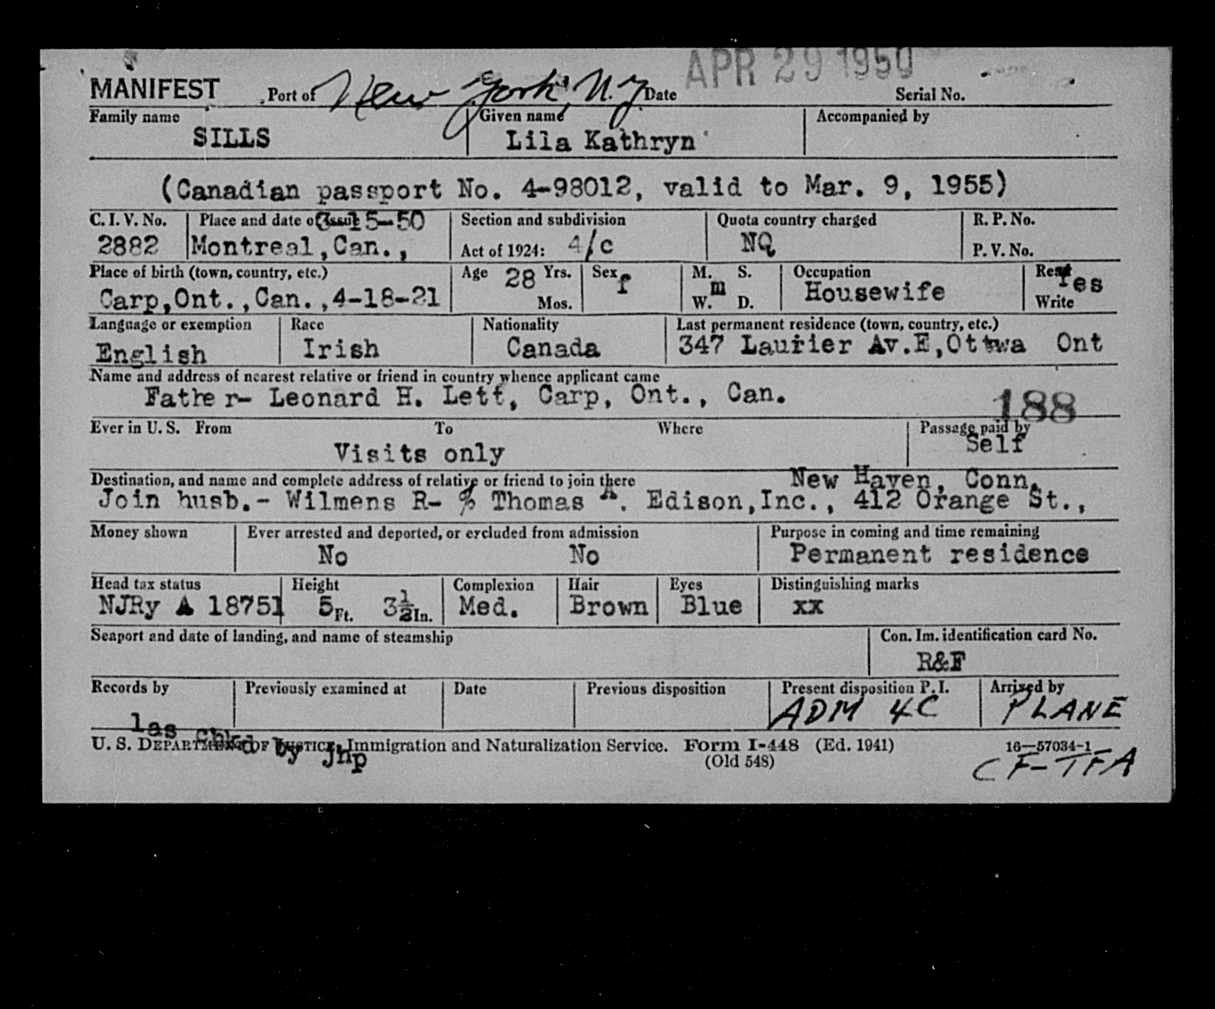 APR 29 1950
MANIFEST Port of New York, N.Y. Date Serial No.
Family name Given name Accompanied by
SILLS Lila Kathryn
(Canadian passport No. 4-98012, valid to Mar. 9, 1955)
C. I. V. No. Place and date of issue 5-50 Section and subdivision Quota country charged R. P. No.
2882 Montreal,Can., Act of 1924: 4/c NQ P. V. No.
Place of birth (town, country, etc.) Age 28 Yrs. Sex f M. S. Occupation Read Yes
Carp,Ont.,Can.,4-18-21 Mos. m W. D. Housewife Write
Language or exemption Race Nationality Last permanent residence (town, country, etc.)
English Irish Canada 347 Laurier Av.E,Ottwa Ont
Name and address of nearest relative or friend in country whence applicant came
Father- Leonard H. Lett, Carp, Ont., Can.
188
Ever in U. S. From To Where Passage paid by
Visits only Self
Destination, and name and complete address of relative or friend to join there New Haven, Conn.
Join husb.- Wilmens R- % Thomas A. Edison,Inc., 412 Orange St.,
Money shown Ever arrested and deported, or excluded from admission Purpose in coming and time remaining
No No Permanent residence
Head tax status Height Complexion Hair Eyes Distinguishing marks
NJRy A 18751 5 Ft. 3½ In. Med. Brown Blue xx
Seaport and date of landing, and name of steamship Con. Im. identification card No.
R&F
Records by Previously examined at Date Previous disposition Present disposition P. I. Arrived by
ADM 4C PLANE
las Chkd by jhp
U. S. DEPARTMENT OF JUSTICE, Immigration and Naturalization Service. Form I-448 (Ed. 1941) 16—57034-1
(Old 548) CF-TFA